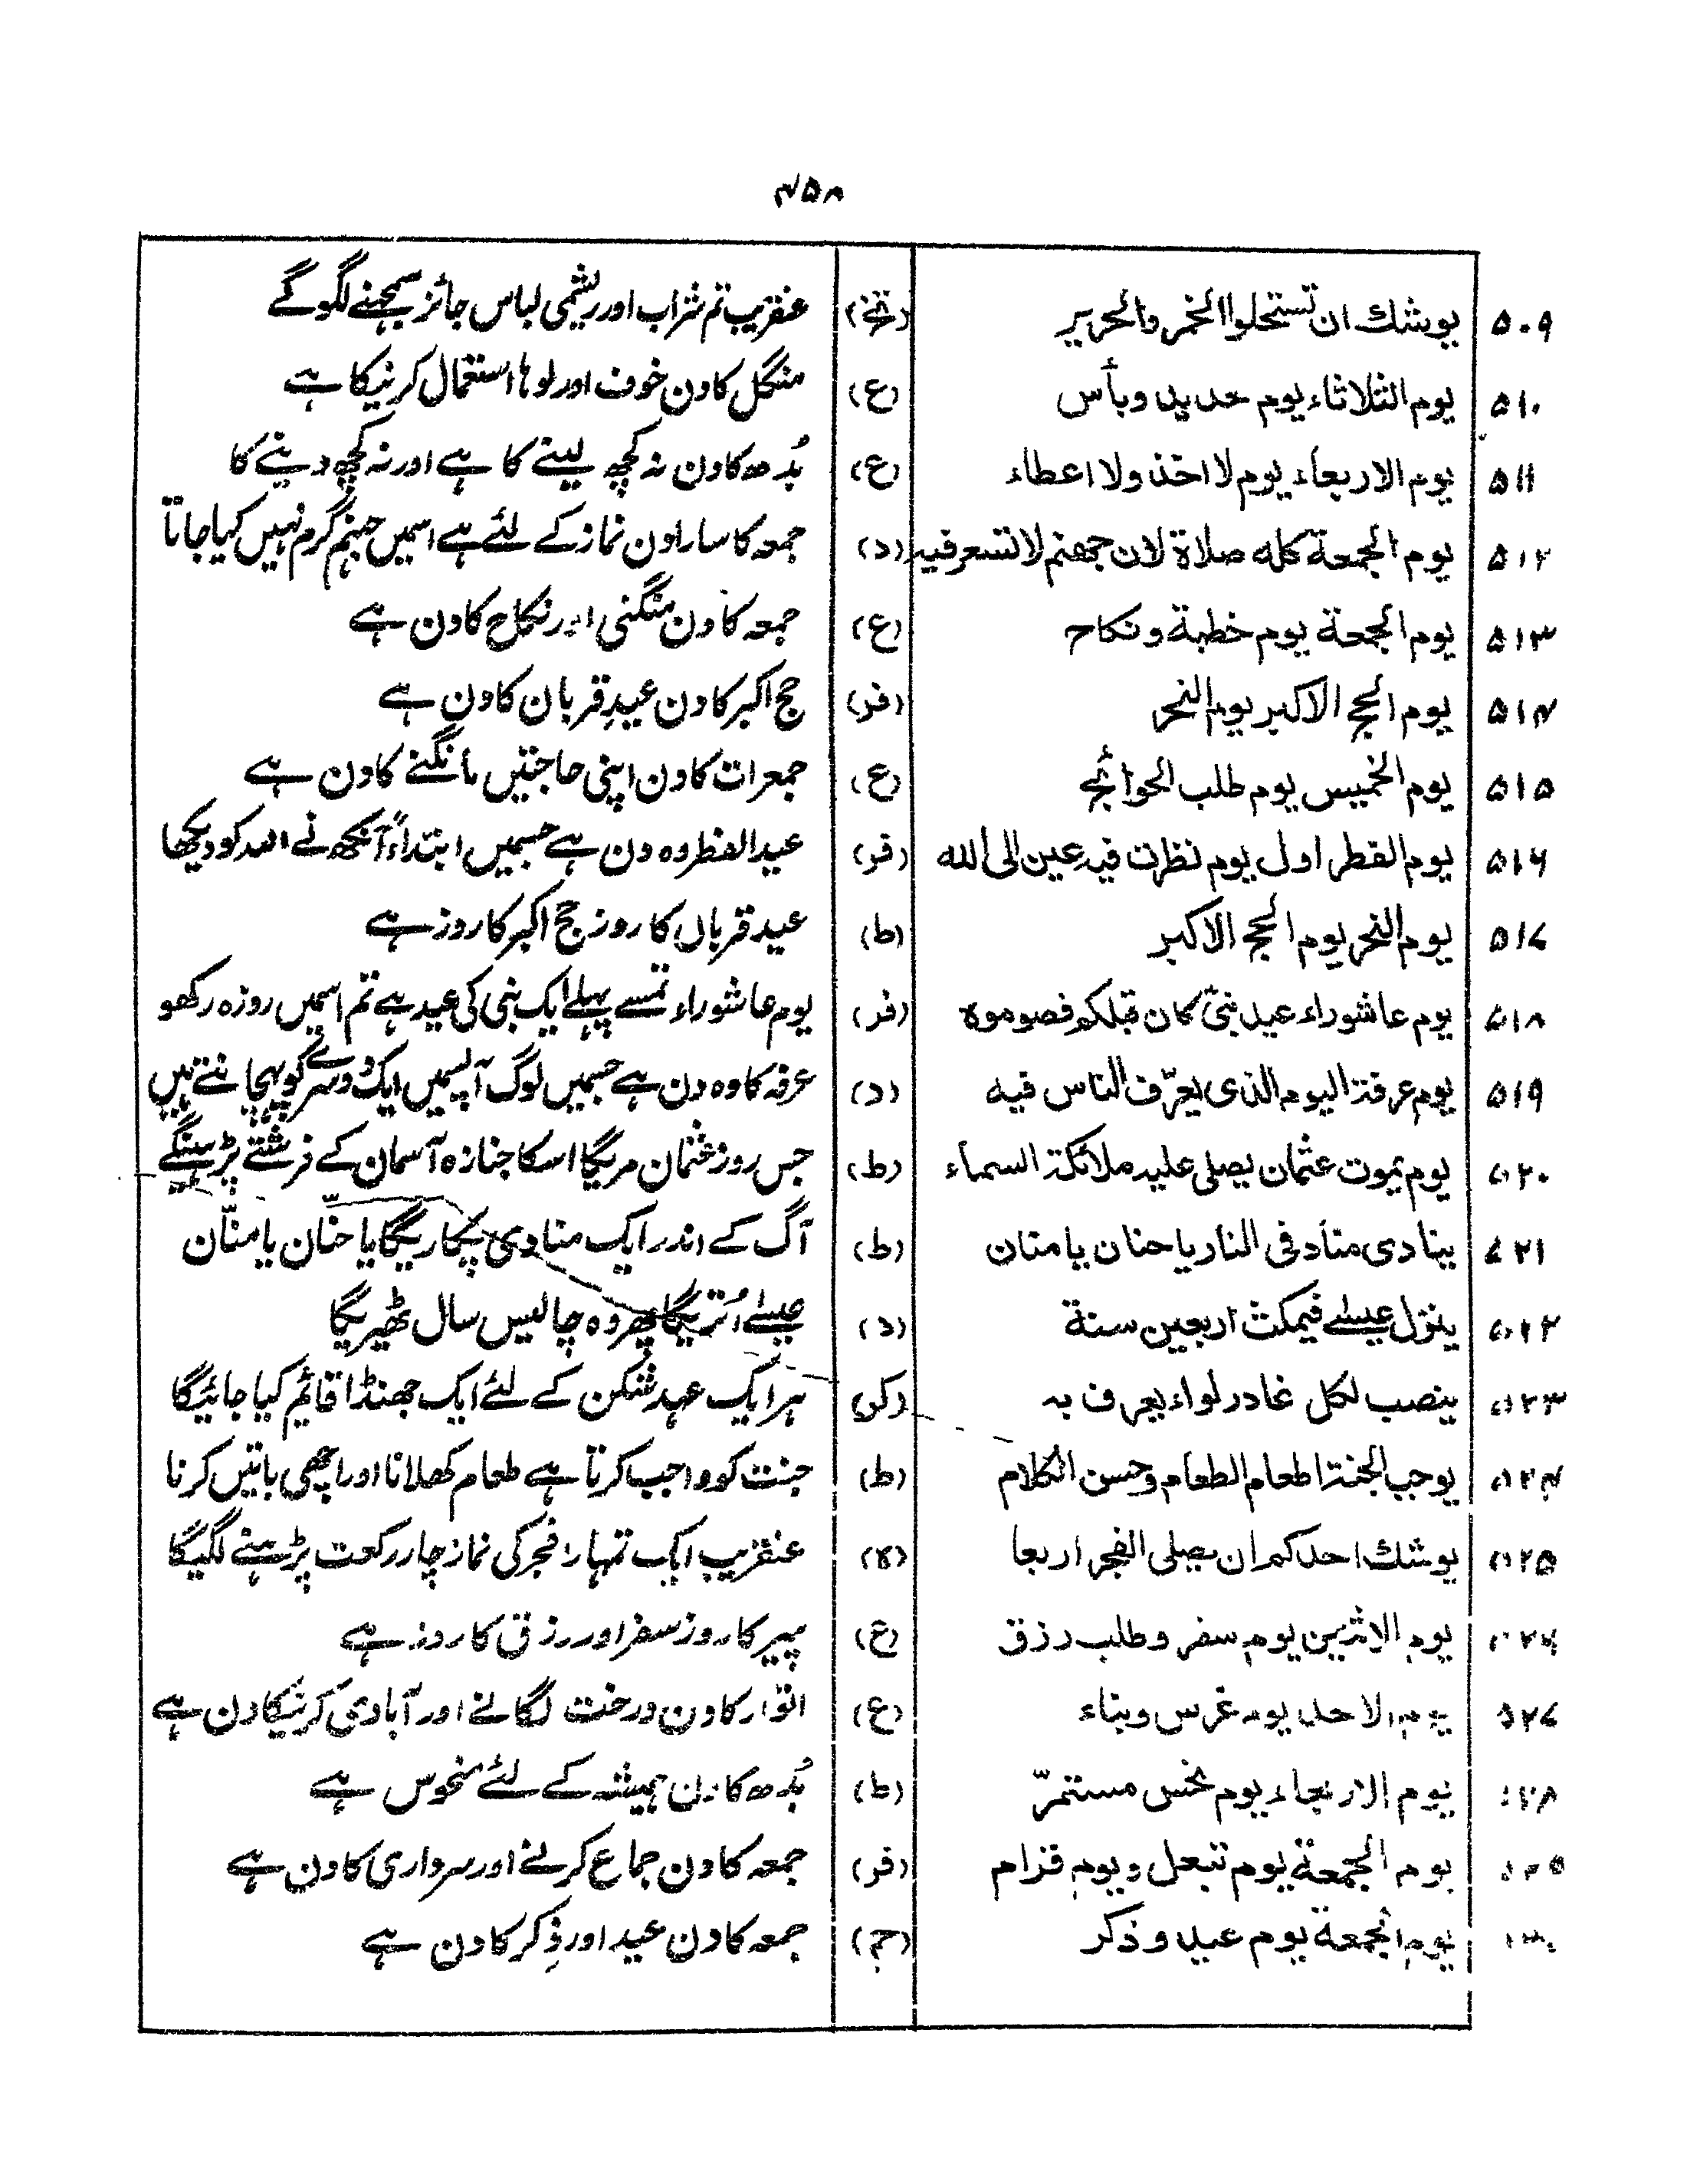 ۴۵۸
۵۰۹ یوشك ان تستحلوا الخمر والحریر (تخ) عنقریب تم شراب اور ریشمی لباس جائز سمجہنے لگوگے
۵۱۰ یوم الثلاثاء یوم حدید وبأس (ع) منگل کا دن خوف اور لوہا استعمال کرنیکا ہے
۵۱۱ یوم الاربعاء یوم لا اخذ ولا اعطاء (ع) بُدھ کا دن نہ کچھ لینے کا ہے اور نہ کچھ دینے کا
۵۱۲ یوم الجمعة کله صلاة لان جهنم لا تسعر فیه (د) جمعہ کا سارا دن نماز کے لئے ہے اسمیں جہنم گرم نہیں کیا جاتا
۵۱۳ یوم الجمعة یوم خطبة ونکاح (ع) جمعہ کا دن منگنی اور نکاح کا دن ہے
۵۱۴ یوم الحج الاکبر یوم النحر (فر) حج اکبر کا دن عیدِ قربان کا دن ہے
۵۱۵ یوم الخمیس یوم طلب الحوائج (ع) جمعرات کا دن اپنی حاجتیں مانگنے کا دن ہے
۵۱۶ یوم الفطر اول یوم نظرت فیه عین الی الله (فر) عید الفطر وہ دن ہے جسمیں ابتداءً آنکھ نے اللہ کو دیکھا
۵۱۷ یوم النحر یوم الحج الاکبر (ط) عید قرباں کا روز حج اکبر کا روز ہے
۵۱۸ یوم عاشوراء عید نبیّ کان قبلکم فصوموه (فر) یوم عاشوراء تمسے پہلے ایک نبی کی عید ہے تم اسمیں روزہ رکھو
۵۱۹ یوم عرفة الیوم الذی یعرّف الناس فیه (د) عرفہ کا وہ دن ہے جسمیں لوگ آپسمیں ایک دوسرے کو پہچانتے ہیں
۵۲۰ یوم یموت عثمان یصلی علیه ملائکة السماء (ط) جس روز عثمان مریگا اسکا جنازہ آسمان کے فرشتے پڑہینگے
۵۲۱ ینادی مناد فی النار یا حنان یا منان (ط) آگ کے اندر ایک منادی پکاریگا یا حنّان یا منّان
۵۲۲ ینزل عیسےٰ فیمکث اربعین سنة (د) عیسےٰ اُتریگا پھر وہ چالیس سال ٹھیریگا
۵۲۳ ینصب لکل غادر لواء یعرف به (کر) ہر ایک عہد شکن کے لئے ایک جھنڈا قائم کیا جائیگا
۵۲۴ یوجب الجنة اطعام الطعام وحسن الکلام (ط) جنت کو واجب کرتا ہے طعام کھلانا اور اچھی باتیں کرنا
۵۲۵ یوشك احدکم ان یصلی الفجر اربعا (ہ) عنقریب ایک تمہارا فجر کی نماز چار رکعت پڑہنے لگیگا
۵۲۶ یوم الاثنین یوم سفر وطلب رزق (ع) پیر کا روز سفر اور رزق کا روز ہے
۵۲۷ یوم الاحد یوم غرس وبناء (ع) اتوار کا دن درخت لگانے اور آبادی کرنیکا دن ہے
۵۲۸ یوم الاربعاء یوم نحس مستمرّ (ط) بُدھ کا دن ہمیشہ کے لئے منحوس ہے
یوم الجمعة یوم تبعل ویوم قزام (فر) جمعہ کا دن جماع کرنے اور سرداری کا دن ہے
یوم الجمعة یوم عید وذکر (حم) جمعہ کا دن عید اور ذِکر کا دن ہے